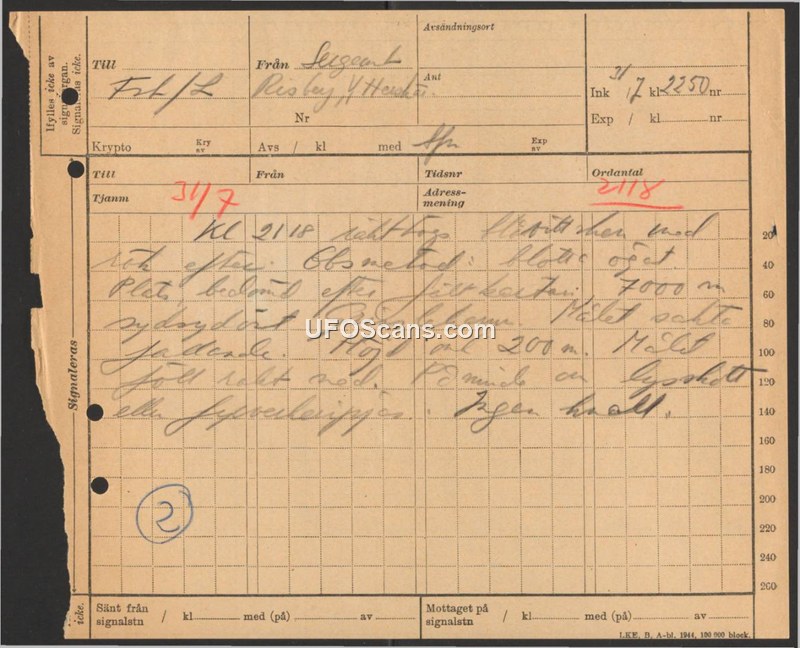 Ifylles icke av
signalorgan.
Signaleras icke.
Till
Fst/L
Från Sergeant
Risby
Nr
Avsändningsort
Ant
Ink 31/7 kl 2250 nr
Exp / kl nr
Krypto
Kry
av
Avs / kl med Spr
Exp
av
Till
Från
Tidsnr
Ordantal
Tjänm 31/7
Adress-
mening
2118
Signaleras
Kl 2118 med
rök efter. Obsmetod: blotta ögat.
Plats bedömd efter fältkartan, 7000 m
sydsydöst Målet sakta
fallande. Höjd omk 200 m. Målet
föll rakt ned. Påminde om lysskott
eller fyrverkeripjäs. Ingen knall.
20
40
60
80
100
120
140
160
180
200
220
240
260
2
UFOScans.com
icke.
Sänt från
signalstn / kl med (på) av
Mottaget på
signalstn / kl med (på) av
LKE. B. A-bl. 1944, 100 000 block.